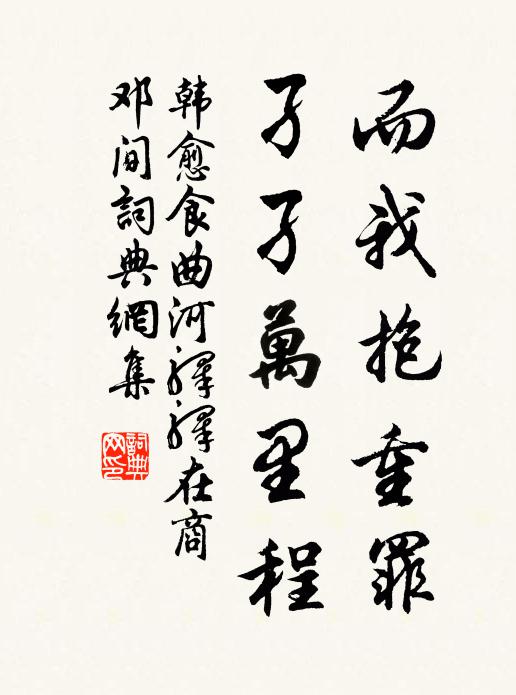 而我抱重罪
孑孑萬里程
韩愈食曲河驛驛在商
邓间詞典網集
詞典网印